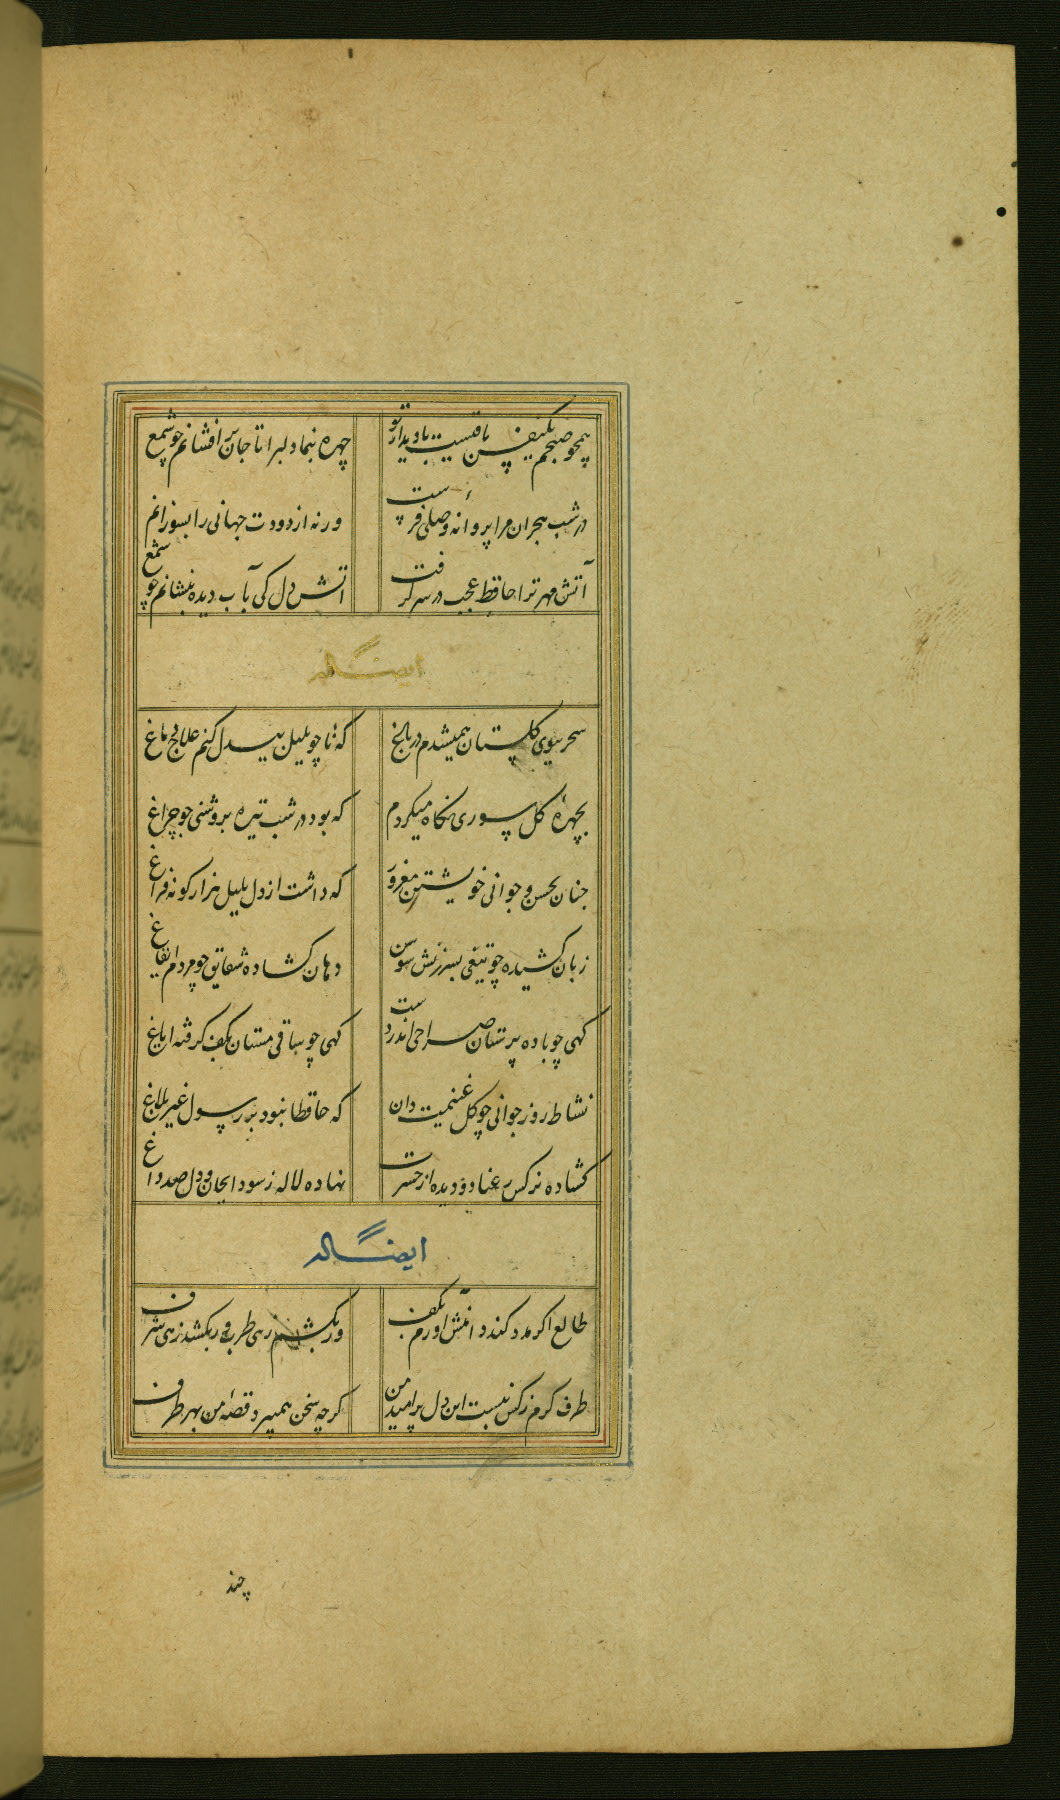 همچو صبحم یکنفس باقیست با دیدار تو    چهره بنما دلبرا تا جان برافشانم چو شمع
در شب هجران مرا پروانه وصلی فرست    ورنه از دودت جهانی را بسوزانم چو شمع
آتش مهر ترا حافظ عجب در سر گرفت    آتش دل کی بآب دیده بنشانم چو شمع
ایضاً له
سحر ببوی کلستان همیشدم در باغ    که تا چو بلبل بیدل کنم علاج دماغ
بچهرهٔ کل سوری نکاه میکردم    که بود در شب تیره بروشنی چو چراغ
چنان بحسن و جوانی خویشتن مغرور    که داشت از دل بلبل هزار کونه فراغ
زبان کشیده چو تیغی بسرزنش سوسن    دهان کشاده شقایق چو مردم ایغاغ
کهی چو باده پرستان صراحی اندر دست    کهی چو ساقی مستان بکف کرفته ایاغ
نشاط روز جوانی چو کل غنیمت دان    که حافظا نبود بر رسول غیر بلاغ
کشاده نرکس رعنا دو دیده از حسرت    نهاده لاله ز سودا بجان و دل صد داغ
ایضاً له
طالع اکر مدد کند دامنش آورم بکف    ور بکشم زهی طرب ور بکشد زهی شرف
طرف کرم ز کس نبست این دل پر امید من    کرچه سخن همیبرد قصهٔ من بهر طرف
چند